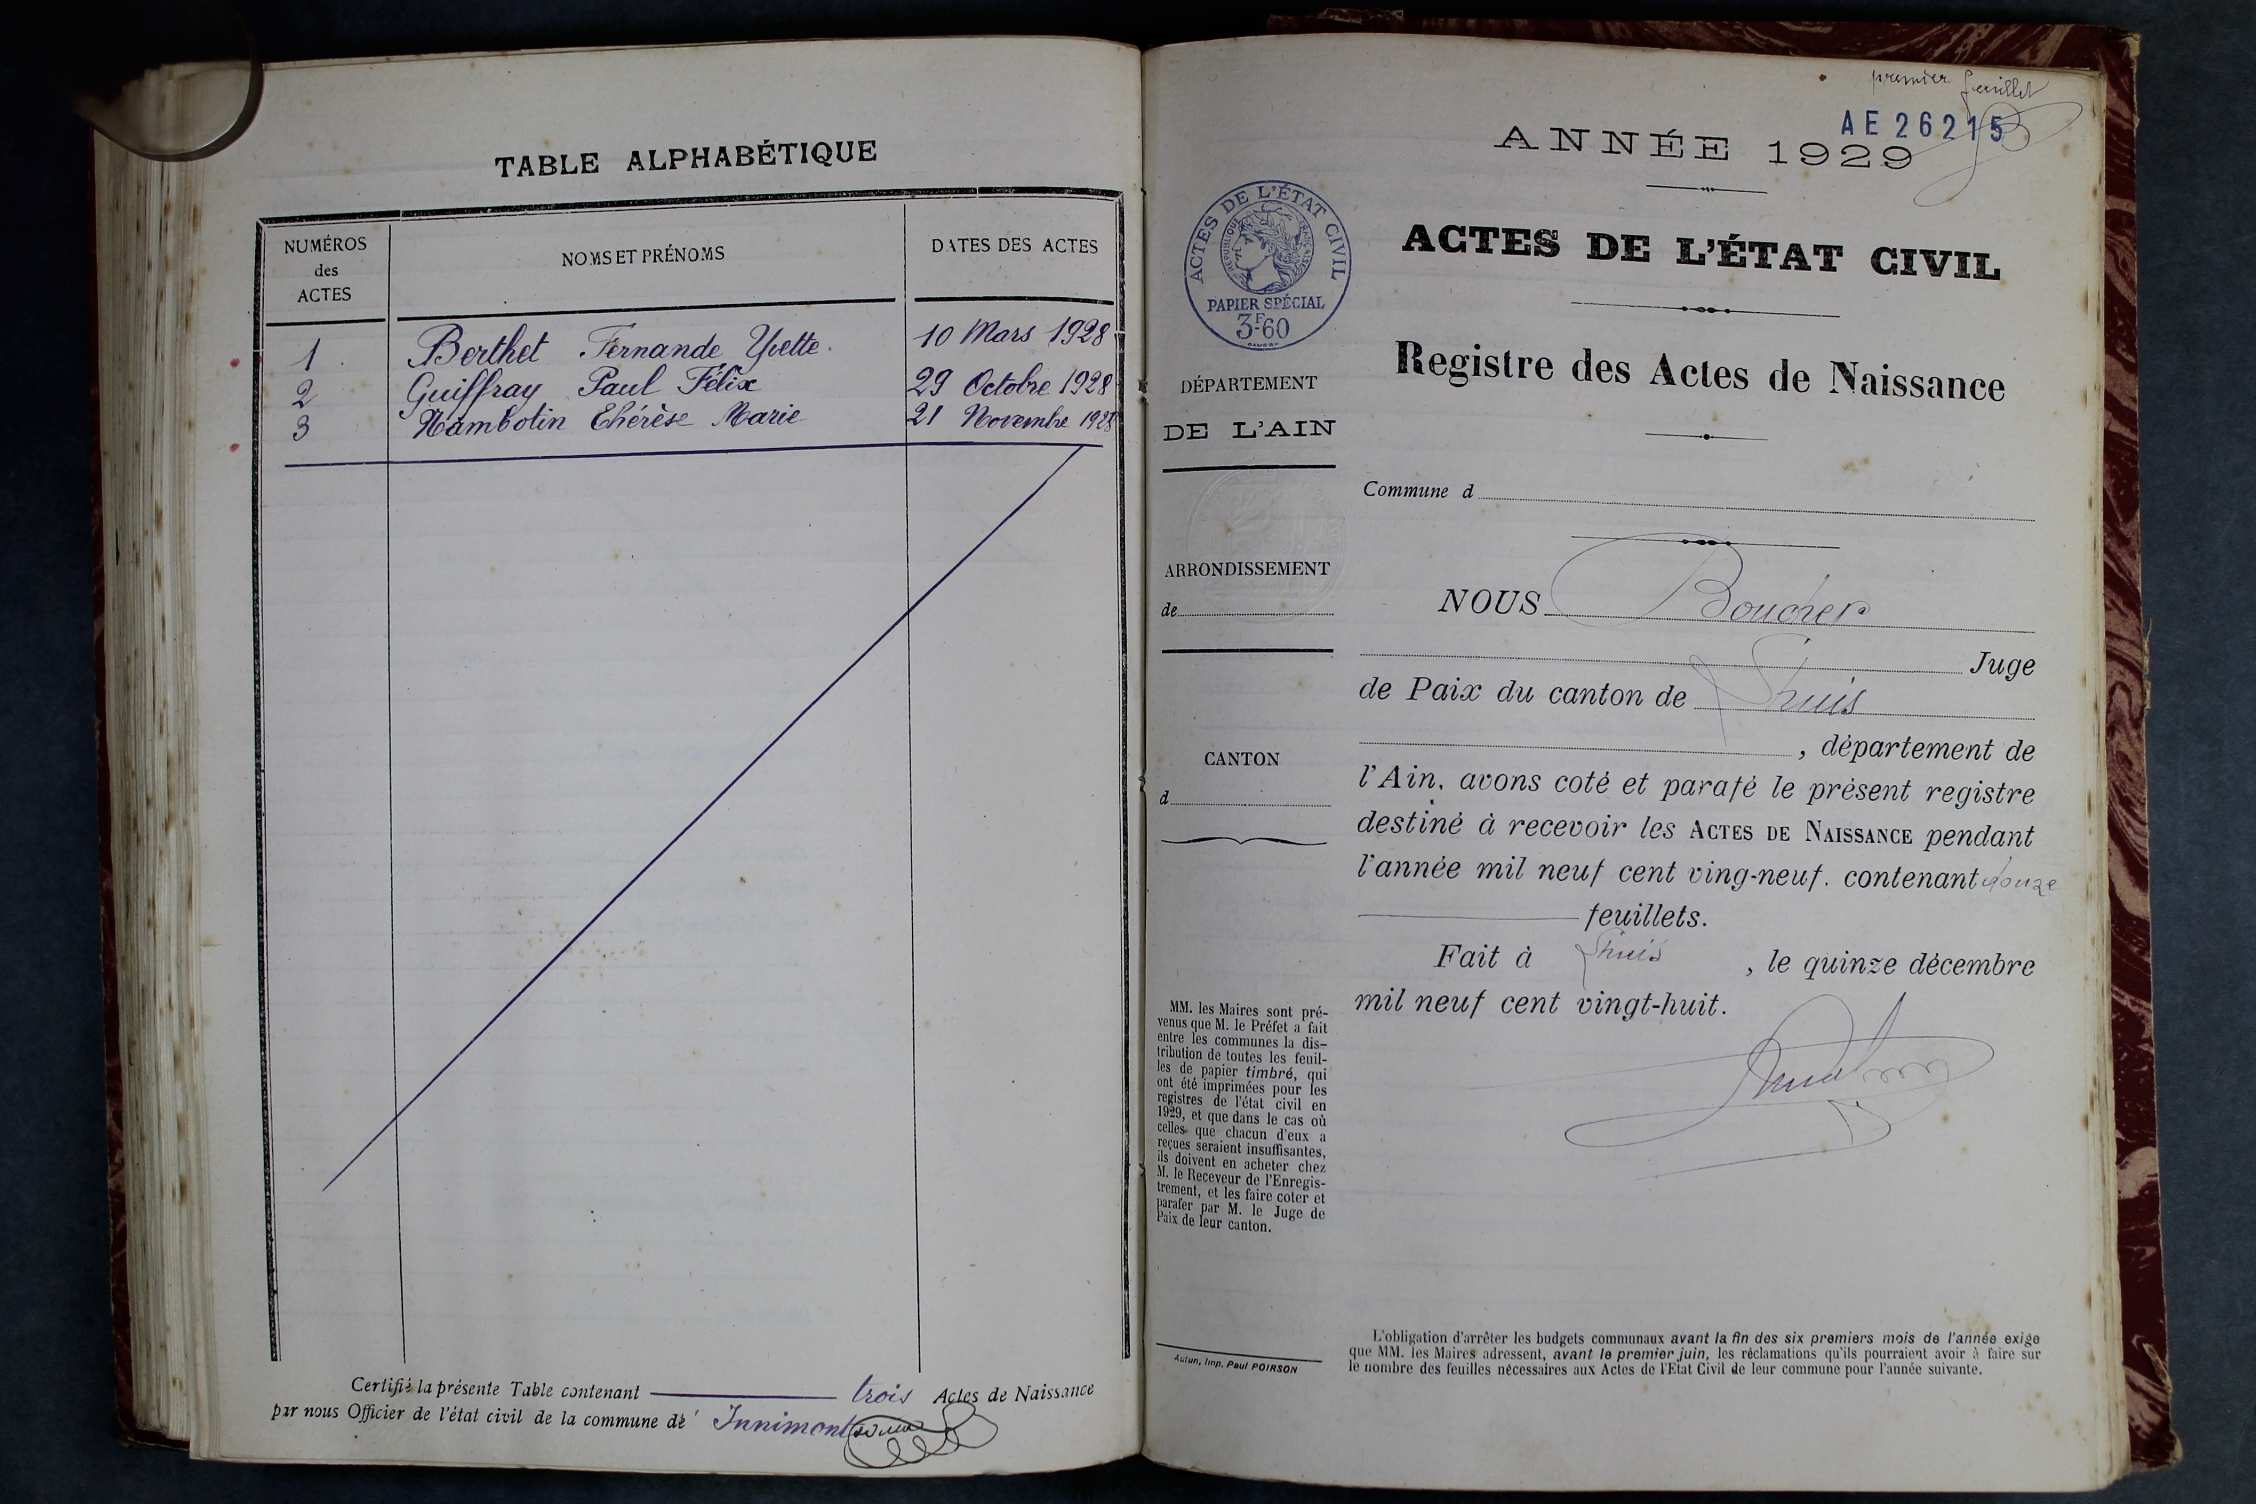 TABLE ALPHABÉTIQUE
NUMÉROS
des
ACTES
NOMS ET PRÉNOMS
DATES DES ACTES
1 Berthet Fernande Yvette 10 Mars 1928
2 Guiffray Paul Félix 29 Octobre 1928
3 Hambotin Thérèse Marie 21 Novembre 1928
Certifié la présente Table contenant trois Actes de Naissance
par nous Officier de l'état civil de la commune de Innimont
premier feuillet
AE 26215
ANNÉE 1929
ACTES DE L'ÉTAT CIVIL
RÉPUBLIQUE FRANÇAISE
PAPIER SPÉCIAL
3F60
ACTES DE L'ÉTAT CIVIL
Registre des Actes de Naissance
DÉPARTEMENT
DE L'AIN
ARRONDISSEMENT
de
CANTON
d
MM. les Maires sont pré-
venus que M. le Préfet a fait
entre les communes la dis-
tribution de toutes les feuil-
les de papier timbré, qui
ont été imprimées pour les
registres de l'état civil en
1929, et que dans le cas où
celles que chacun d'eux a
reçues seraient insuffisantes,
ils doivent en acheter chez
M. le Receveur de l'Enregis-
trement, et les faire coter et
parafer par M. le Juge de
Paix de leur canton.
Autun, Imp. Paul POIRSON
Commune d
NOUS Boucher
Juge
de Paix du canton de Lhuis
, département de
l'Ain, avons coté et parafé le présent registre
destiné à recevoir les ACTES DE NAISSANCE pendant
l'année mil neuf cent ving-neuf. contenant douze
feuillets.
Fait à Lhuis , le quinze décembre
mil neuf cent vingt-huit.
L'obligation d'arrêter les budgets communaux avant la fin des six premiers mois de l'année exige
que MM. les Maires adressent, avant le premier juin, les réclamations qu'ils pourraient avoir à faire sur
le nombre des feuilles nécessaires aux Actes de l'Etat Civil de leur commune pour l'année suivante.